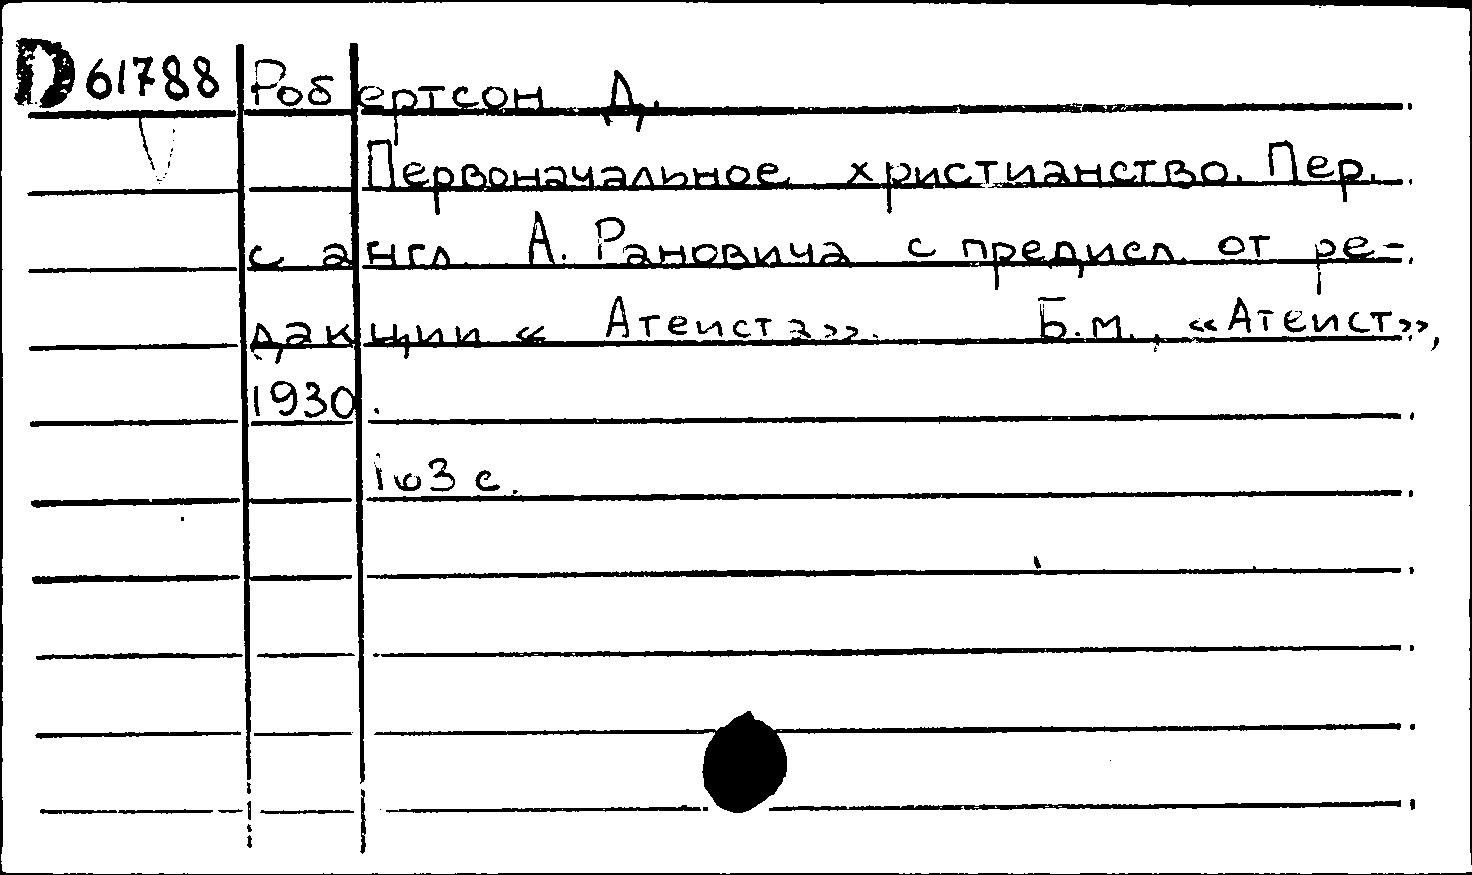 D 61788 Робертсон Д.
Первоначальное христианство. Пер.
с англ. А. Рановича с предисл. от ре-
дакции « Атеиста». Б.м., «Атеист»,
1930.
с.